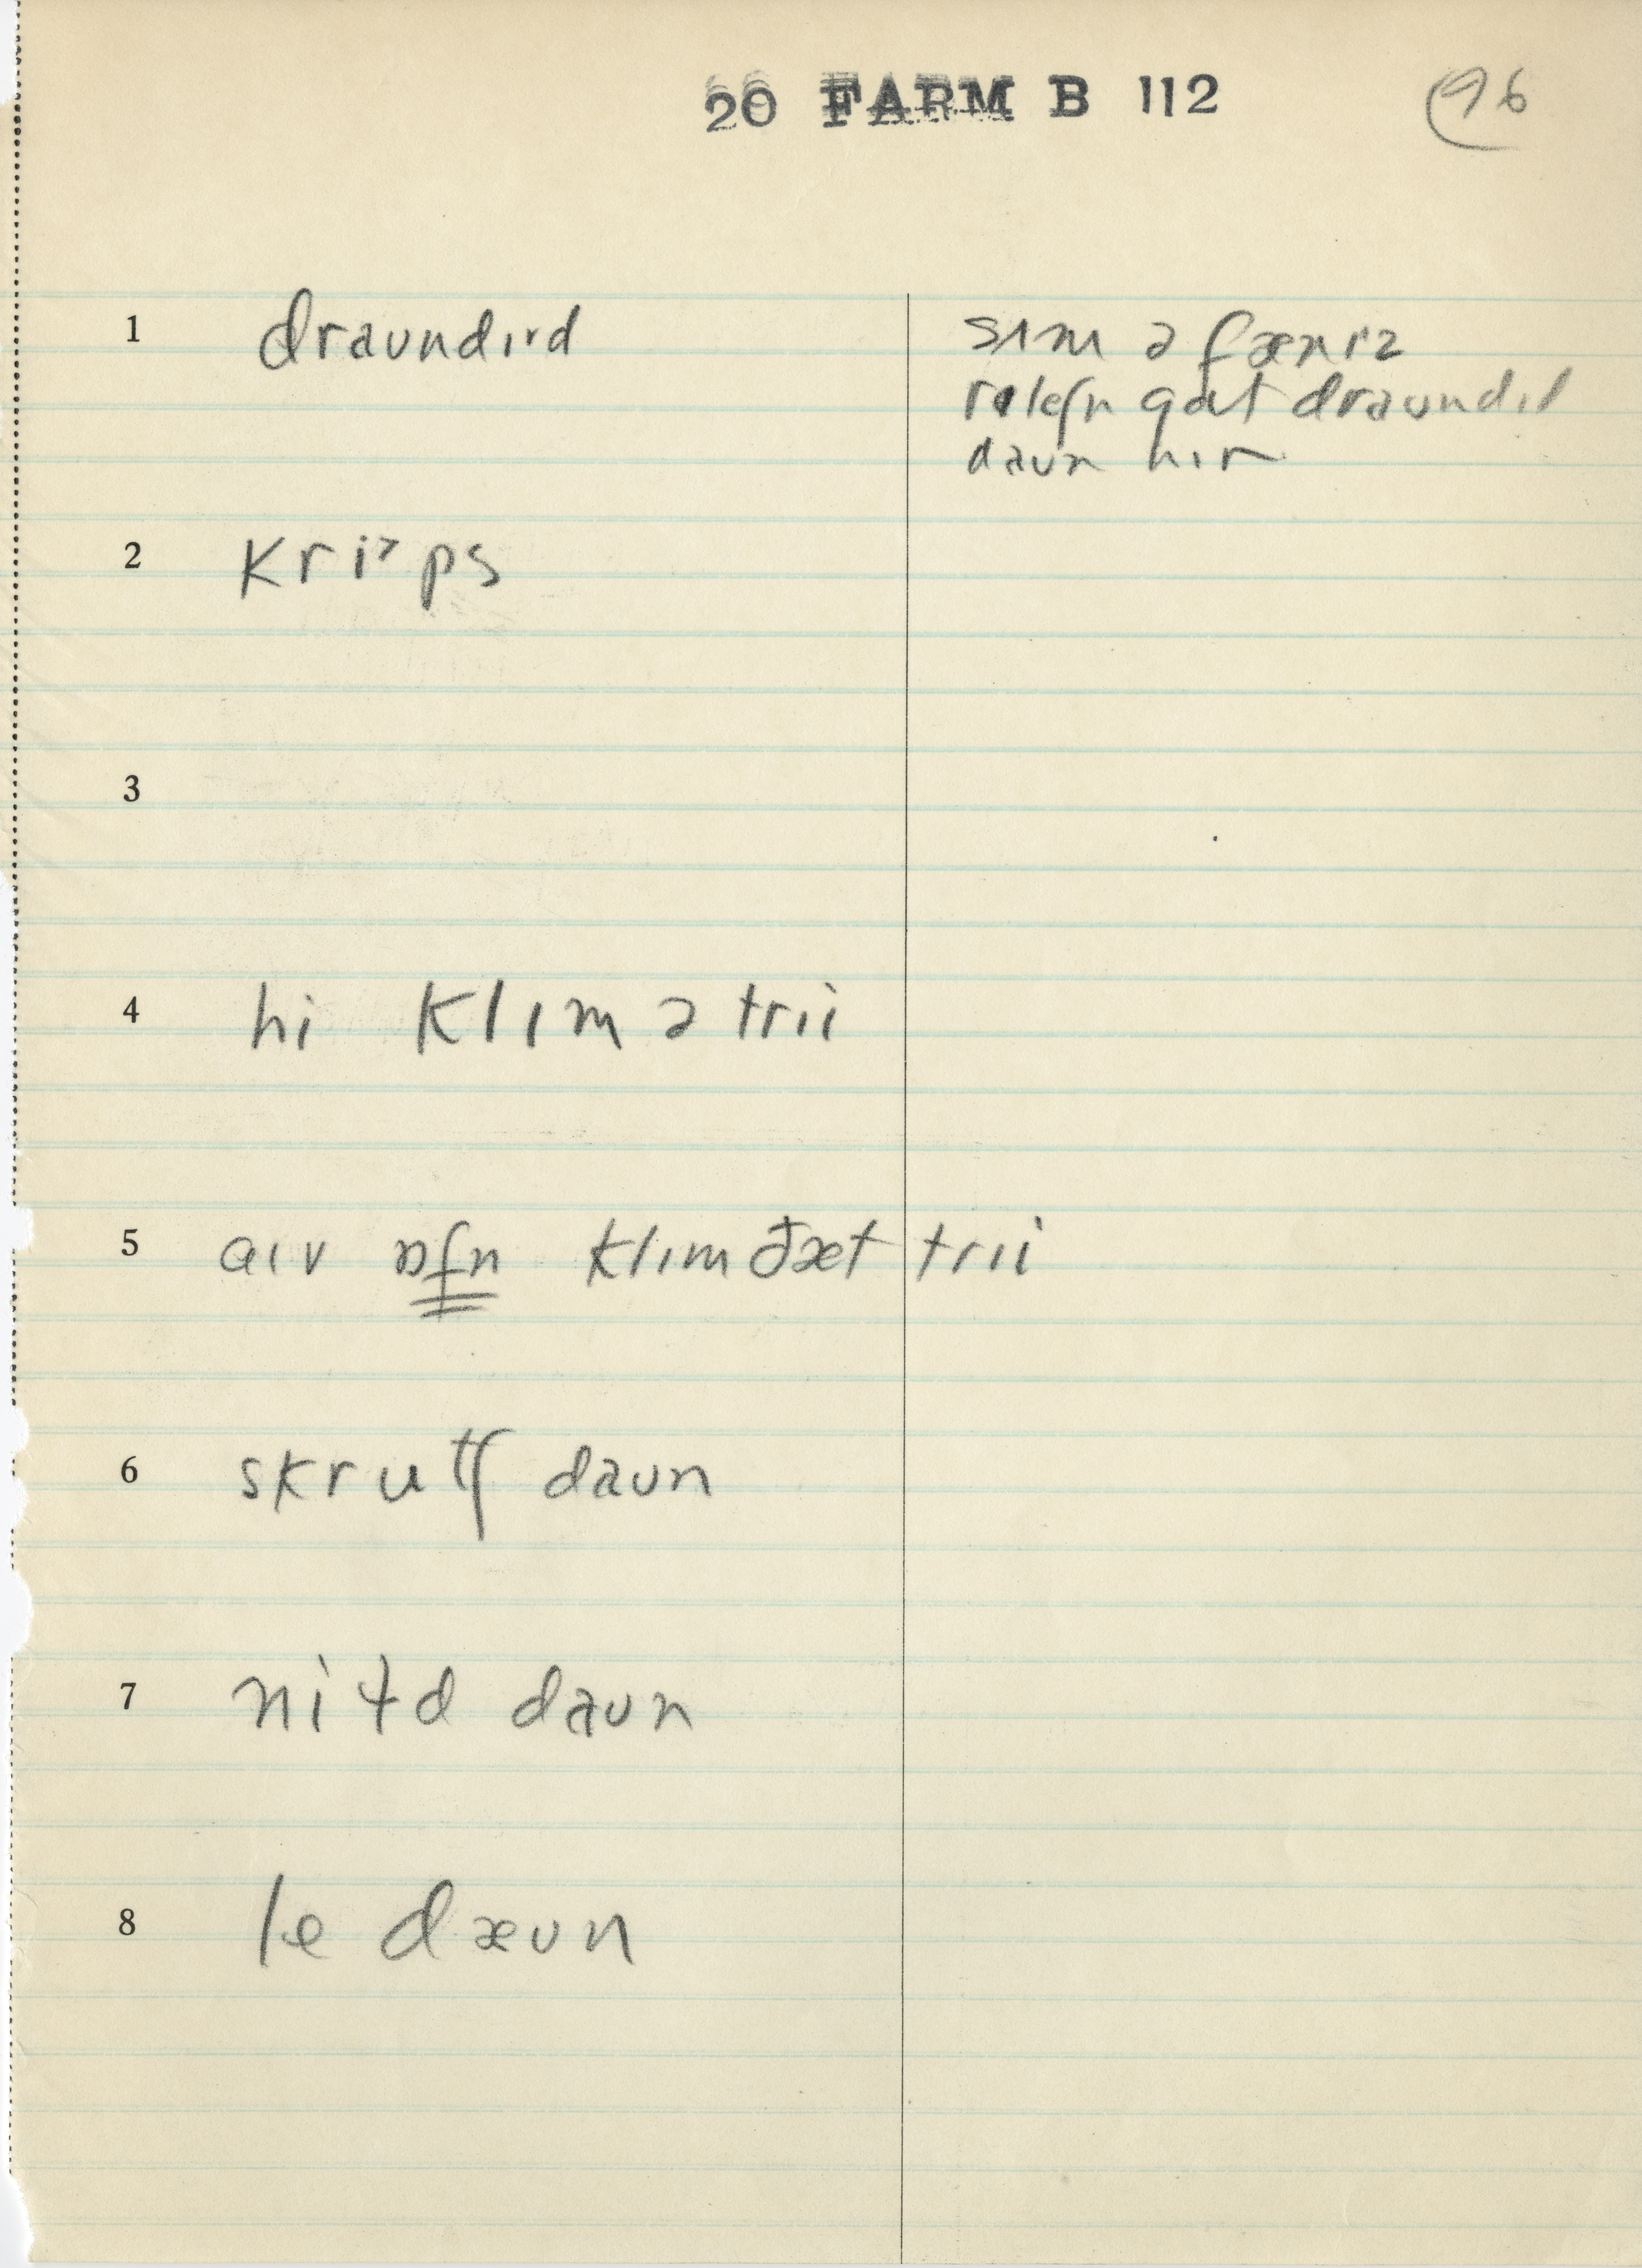 20 FARM B 112
96
1 draundɪrd
sʌm ə fænɪz
rɪleʃn gɑt draundɪd
daun hɪr
2 kriᵊps
3
4 hi klɪm ə trii
5 aɪv ɒfn klɪm ðæt trii
6 skrutʃ daun
7 nitd daun
8 le dæun